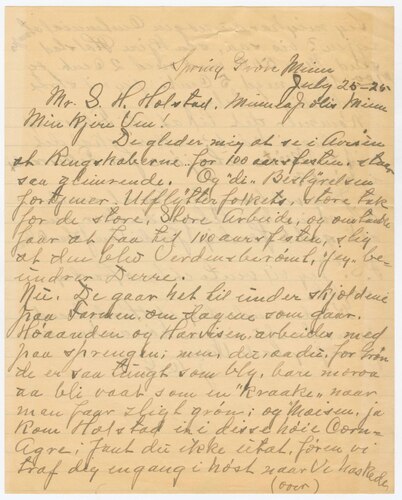 Spring Grove Minn
July 25-25
Mr. S. H. Holstad, Minneapolis Minn
Min kjere Ven!
De gleder mig at se i Avisen
at Regnskaberne for 100 aarsfesten, staar
saa glimrende. Og di Bestyrelsen
fortjener, Utflytterfolkets, store tak
for de store, Store Arbeide, og omtanke
faar at faa til 100 aarsfesten, slig
at den blev Verdensberømt, jeg be-
undrer Derre.
Nu. De gaar het til under skjoldene
paa Farmen, om dagene som gaar.
Høaanden og Harvisen, arbeides med
paa sprengen; men, du raadu, for Grøn
de er saa tungt som bly, bare moroa
aa bli vaat som en "kraake" naar
man faar sligt grøn; og Maisen, ja
kom Holstad in i disse høie Corn-
Agre; fant du ikke utat, føren vi
traf deg engang i høst naar Vi haskede,
(over)